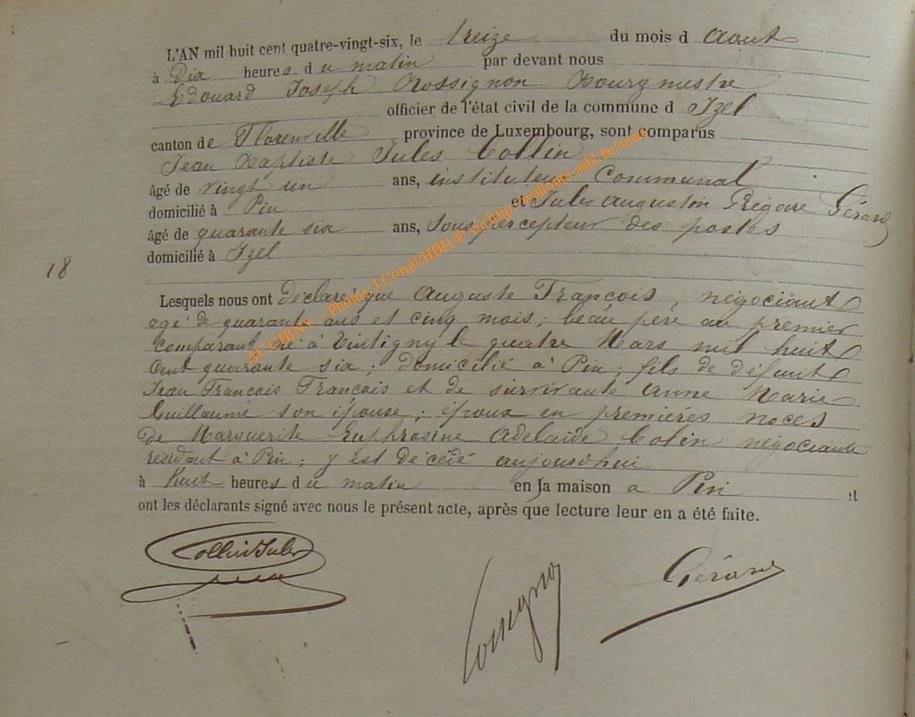 L'AN mil huit cent quatre-vingt-six, le treize du mois d Aout
à Dix heures du matin par devant nous
Edouard Joseph Rossignon Bourgmestre
officier de l'état civil de la commune d Izel
canton de Florenville, province de Luxembourg, sont comparus
Jean Baptiste Jules Collin
âgé de vingt un ans, instituteur Communal
domicilié à Pin et Jules Auguston Grégoire Gérard
âgé de quarante six ans, Sous percepteur des postes
domicilié à Izel
18
Lesquels nous ont déclaré que Auguste François, négociant
agé de quarante ans et cinq mois, beau père au premier
comparant né à Tintigny le quatre Mars mil huit
cent quarante six; domicilié à Pin; fils de défunt
Jean François François et de survivante Anne Marie
Guillaume son épouse; époux en premières noces
de Marguerite Euphrosine Adelaïde Colin négociante
résidant à Pin; y est décédé aujourd'hui
à huit heures du matin en sa maison à Pin et
ont les déclarants signé avec nous le présent acte, après que lecture leur en a été faite.
Collin Jules
Rossignon
Gérard
AC CHINY - Photos J.Cornil HBH @ via http://wallonica.nabl.be/actes